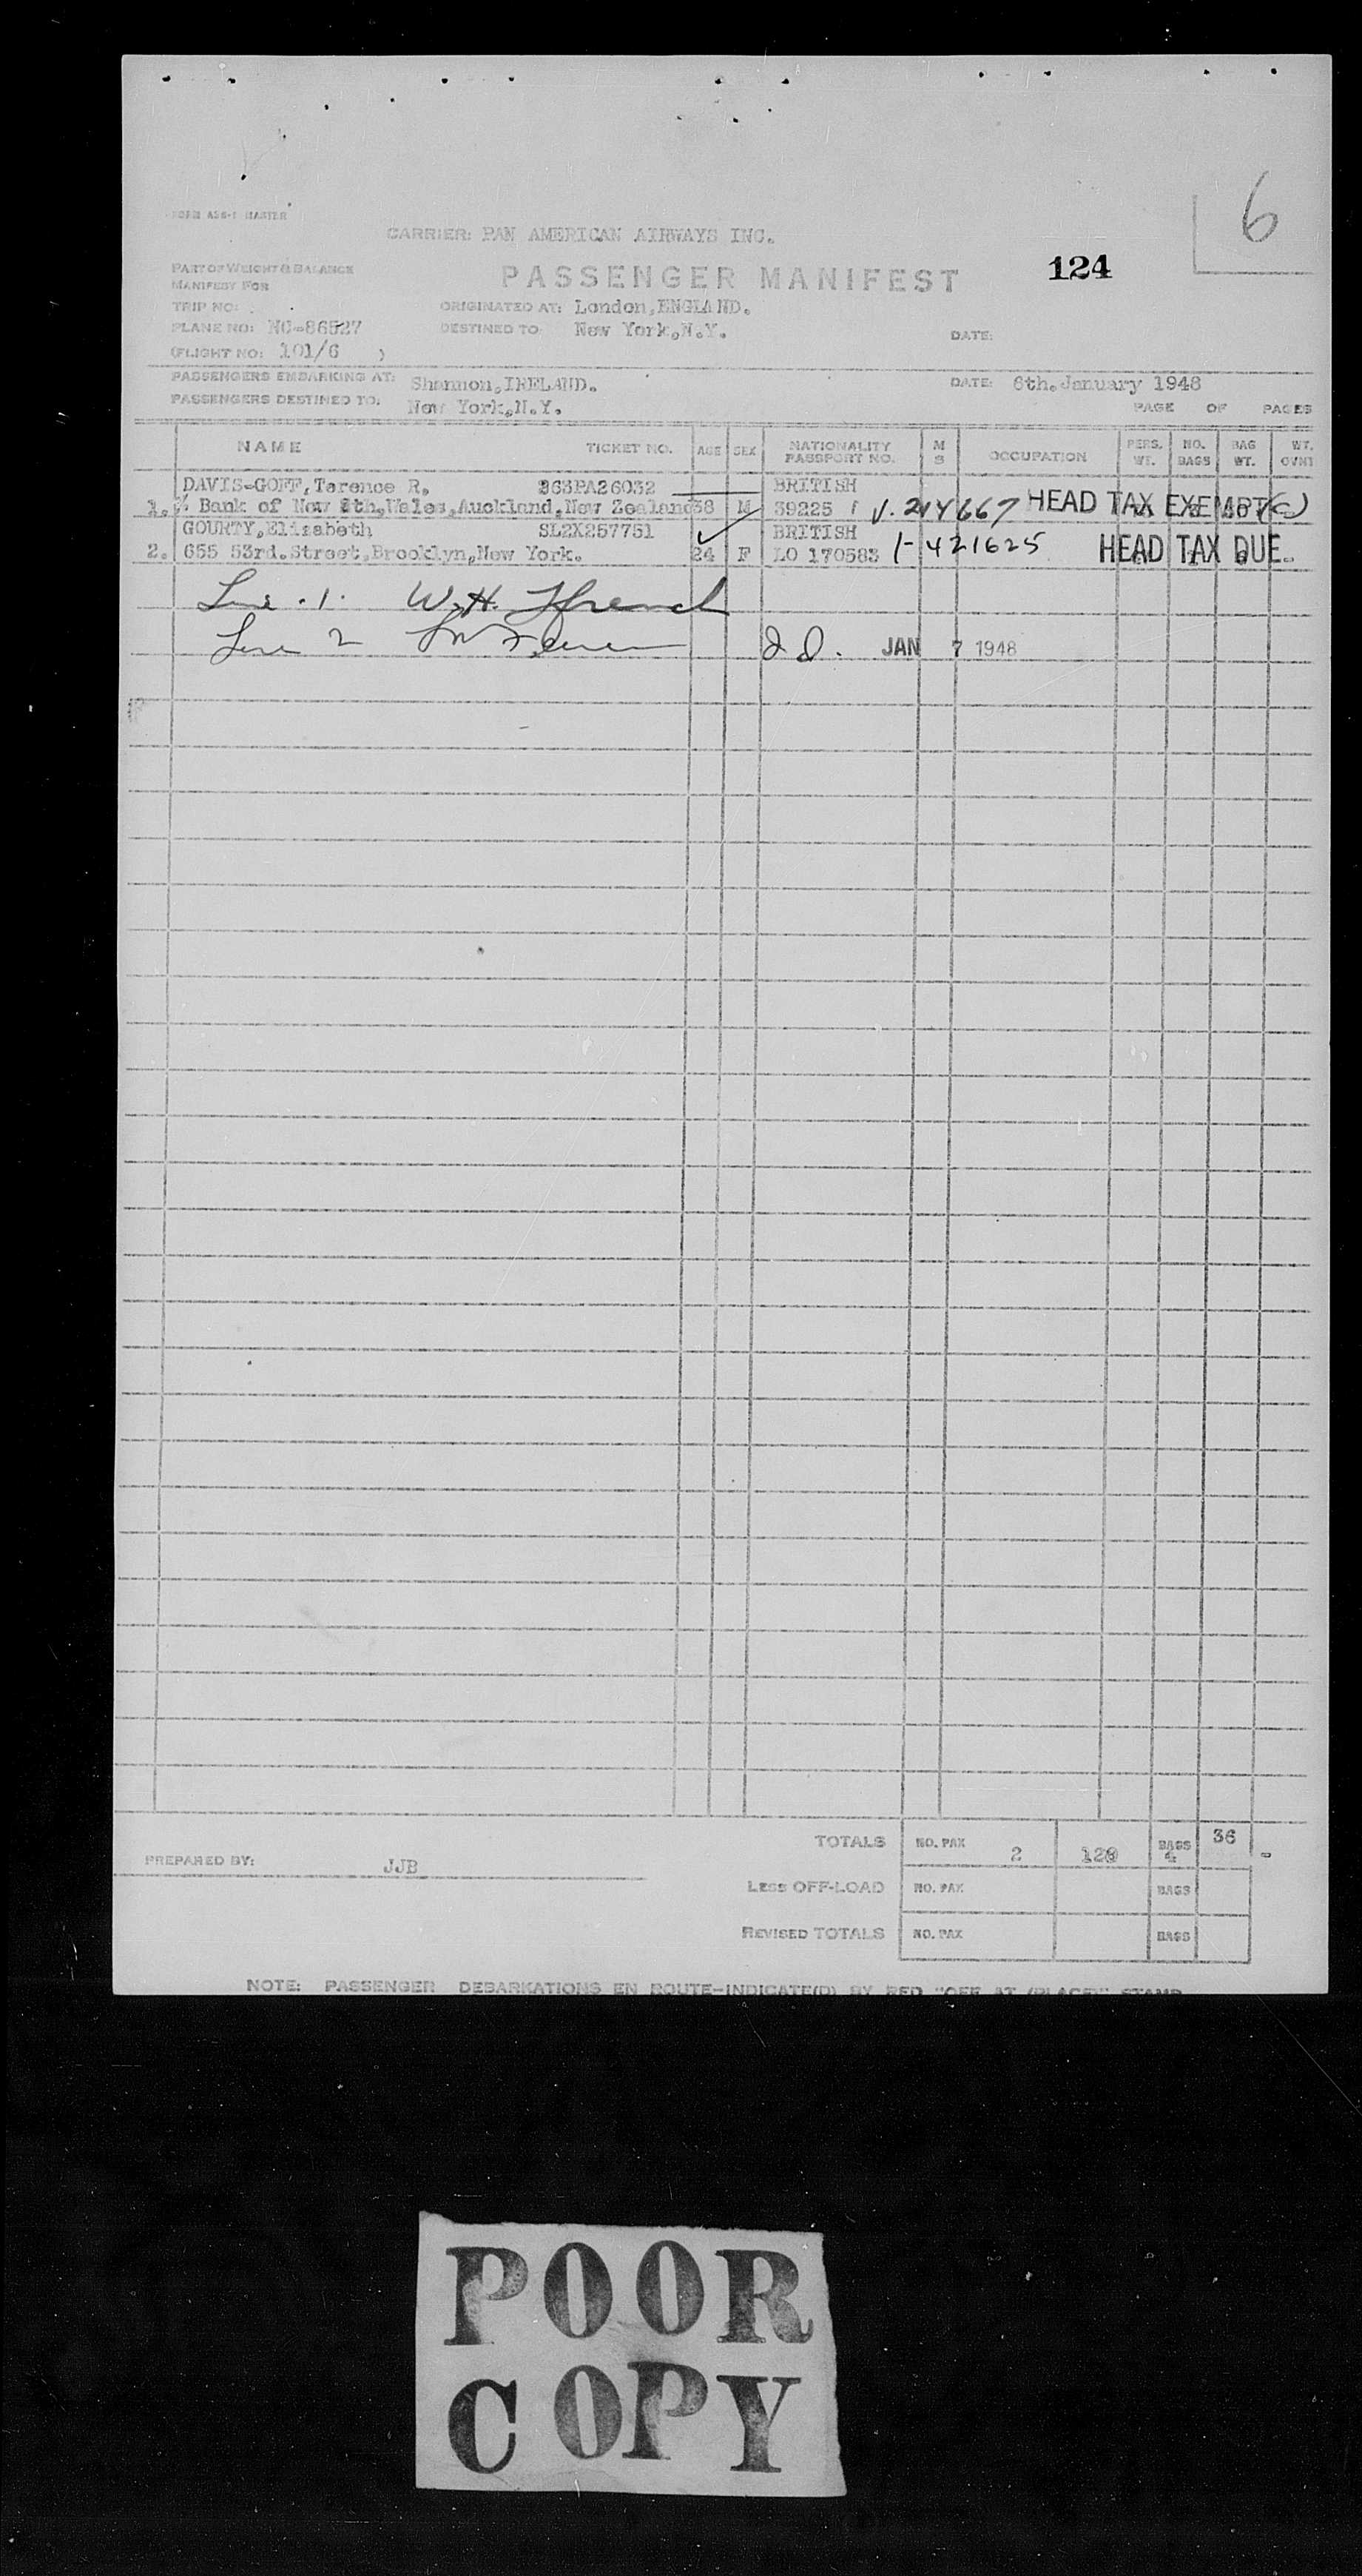 FORM ASG-1 MASTER
6
CARRIER: PAN AMERICAN AIRWAYS INC.
124
PART OF WEIGHT & BALANCE
MANIFEST FOR
PASSENGER MANIFEST
TRIP NO:
ORIGINATED AT: London,ENGLAND.
PLANE NO: NC-86527
DESTINED TO: New York,N.Y.
DATE:
(FLIGHT NO: 101/6 )
PASSENGERS EMBARKING AT: Shannon,IRELAND.
DATE: 6th.January 1948
PASSENGERS DESTINED TO: New York,N.Y.
PAGE OF PAGES
NAME TICKET NO. AGE SEX NATIONALITY PASSPORT NO. M S OCCUPATION PERS. WT. NO. BAGS BAG WT. WT.
DAVIS-GOFF,Terence R. 363PA26032 BRITISH
1. % Bank of New Sth,Wales,Auckland,New Zealand 38 M 39225 V. 244667 HEAD TAX EXEMPT
GOURTY,Elizabeth SL2X257751 BRITISH
2. 655 53rd.Street,Brooklyn,New York. 24 F LO 170583 1-421625 HEAD TAX DUE.
Line .1. W.H. Ffrench
Line 2 JAN 7 1948
TOTALS NO. PAX 2 BAGS 4 36 -
PREPARED BY: JJB
LESS OFF-LOAD NO. PAX BAGS
REVISED TOTALS NO. PAX BAGS
NOTE: PASSENGER DEBARKATIONS EN ROUTE-INDICATE(D) BY RED "OFF AT (PLACE)" STAMP
POOR
COPY